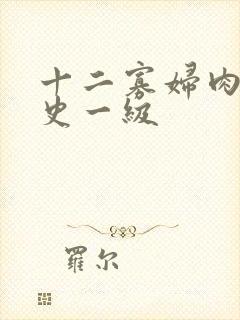 十二寡婦肉
史一級
羅尔